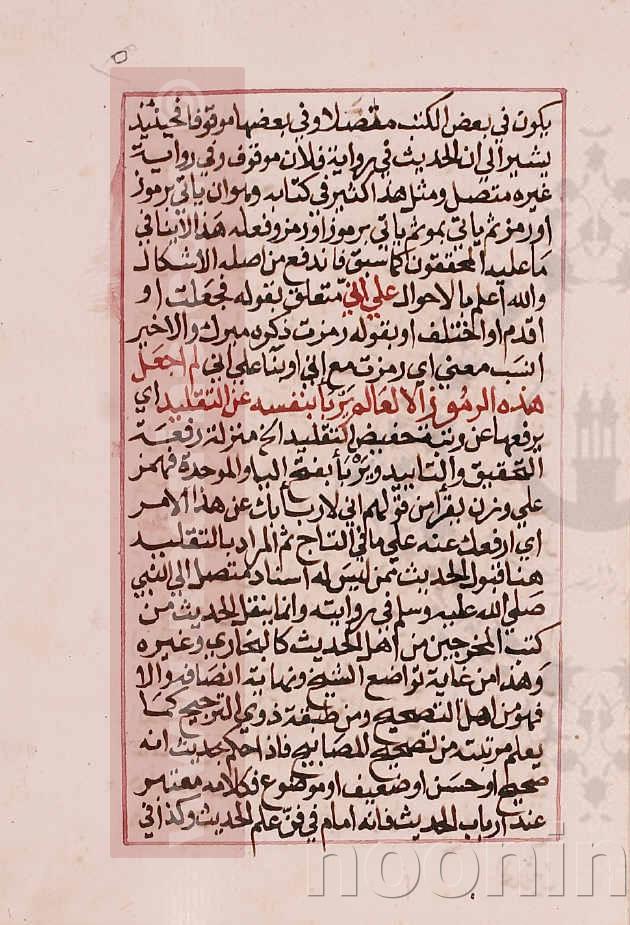 يكون في بعض الكتب متصلا وفي بعضها موقوفا فحينئذ
يشير الى ان الحديث في رواية فلان موقوف وفي رواية
غيره متصل ومثل هذا كثير في كتابه وهو ان ياتي برموز
او رمز ثم ياتي بمو ثم ياتي برموز او رمز وفعله هذا لاينافي
ما عليه المحققون كما سبق فاندفع من اصله الاشكال
والله اعلم بالاحوال علي اني متعلق بقوله فجعلت او
اقدم او المختلف او بقوله رمزت ذكره ميرك والاخير
انسب معني اي رمزت مع اني او بنا علي اني لم اجعل
هذه الرموز الا لعالم يربا بنفسه عن التقليد اي
يرفعها عن حضيض التقليد الي منزلة رفعة
التحقيق والتاييد ويربأ بفتح اليا والموحدة فهمز
علي وزن يقرا من قولهم اني لاربأ بك عن هذا الامر
اي ارفعك عنه علي ما في التاج ثم المراد بالتقليد
هنا قبول الحديث ممن ليس له اسناد متصل الي النبي
صلي الله عليه وسلم في روايته وانما ينقل الحديث من
كتب المخرجين من اهل الحديث كالبخاري وغيره
وهذا من غاية تواضع الشيخ ونهاية انصافه والا
فهو من اهل التصحيح ومن طبقة ذوي الترجيح كما
يعلم مرتبته من تصحيح المصابيح فاذا حكم بحديث انه
صحيح او حسن او ضعيف او موضوع فكلامه معتبر
عند ارباب الحديث فانه امام في فن علم الحديث وكذا في
noonin